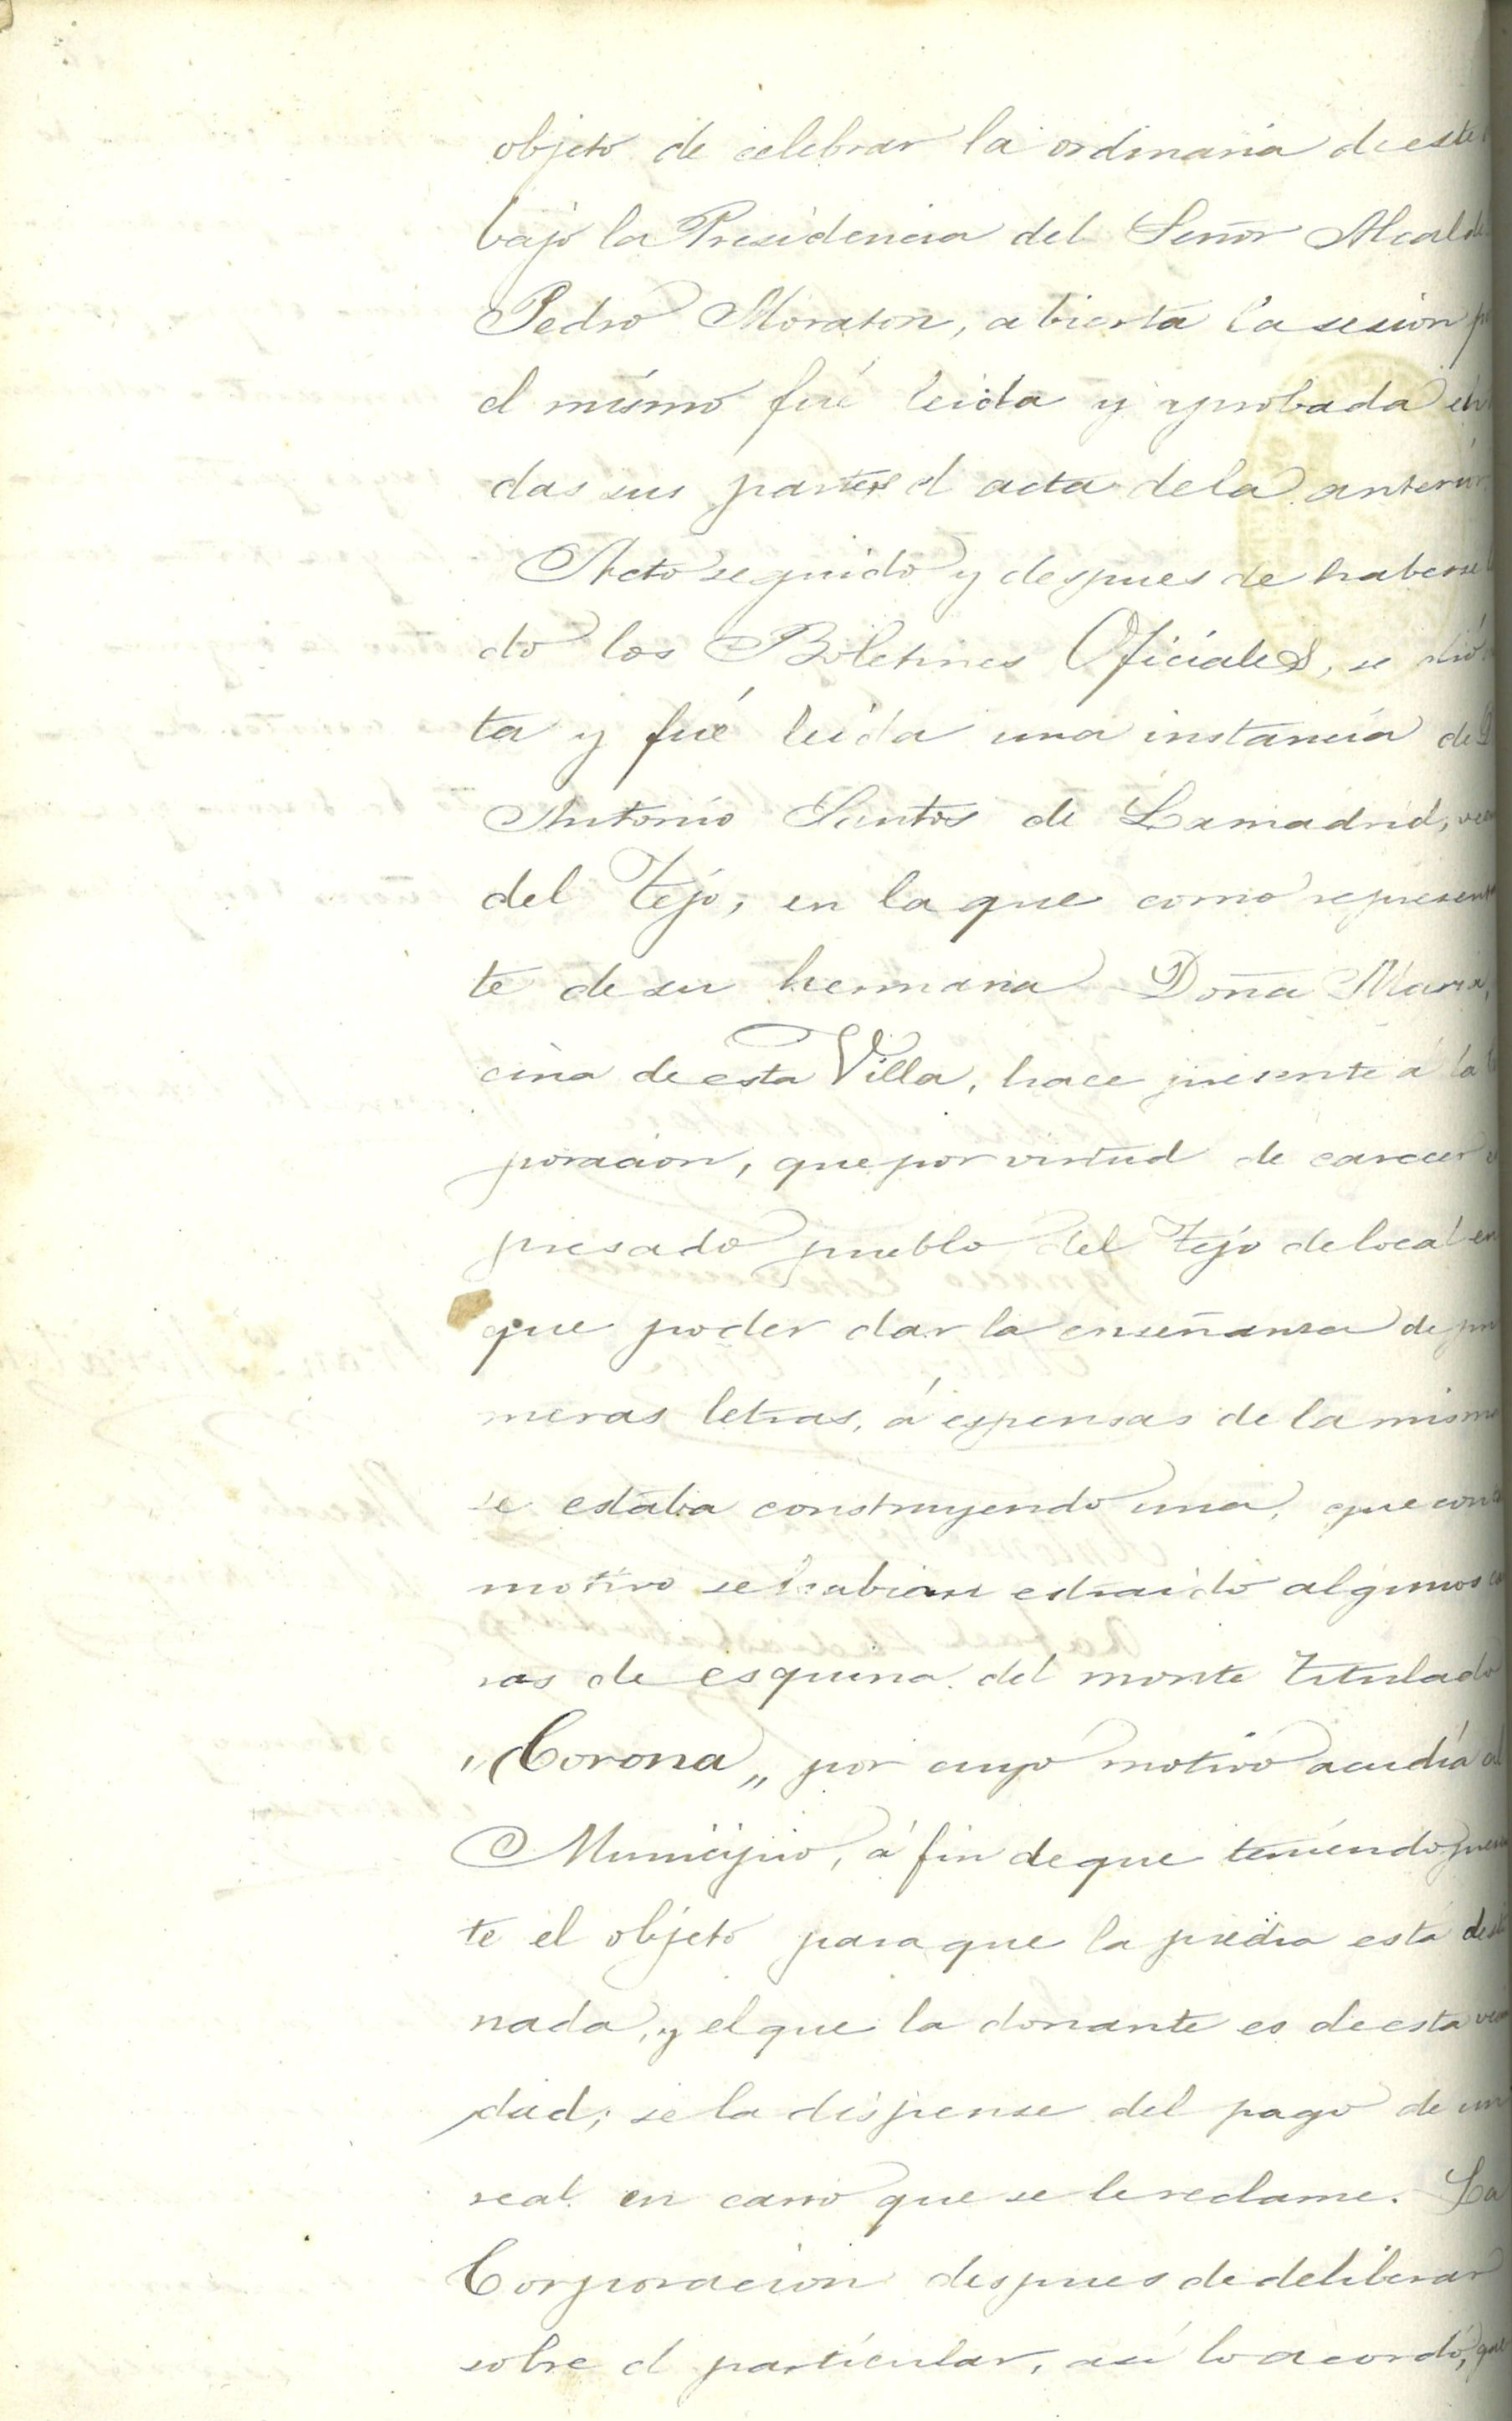 objeto de celebrar la ordinaria de este
bajo la Presidencia del Señor Alcalde
Pedro Moraton, abierta la sesion p
el mismo fué leida y aprobada en
das sus partes el acta de la anterior
Acto seguido y despues de haberse
do los Boletines Oficiales, se dió
ta y fué leida una instancia de D
Antonio Santos de Lamadrid, vec
del Tejo, en la que como represent
te de su hermana Doña Maria,
cina de esta Villa, hace presente á la
poracion, que por virtud de carecer
presado pueblo del Tejo de local en
que poder dar la enseñanza de pri
meras letras, á espensas de la misma
se estaba construyendo una, que con
motivo se habian estraido algunos ca
ros de esquina del monte titulado
"Corona„ por cuyo motivo acudia al
Municipio, á fin de que teniendo presen
te el objeto para que la piedra está desti
nada, y el que la donante es de esta vecin
dad; se la dispense del pago de un
real en carro que se le reclame. La
Corporacion despues de deliberar
sobre el particular, asi lo acordó, que